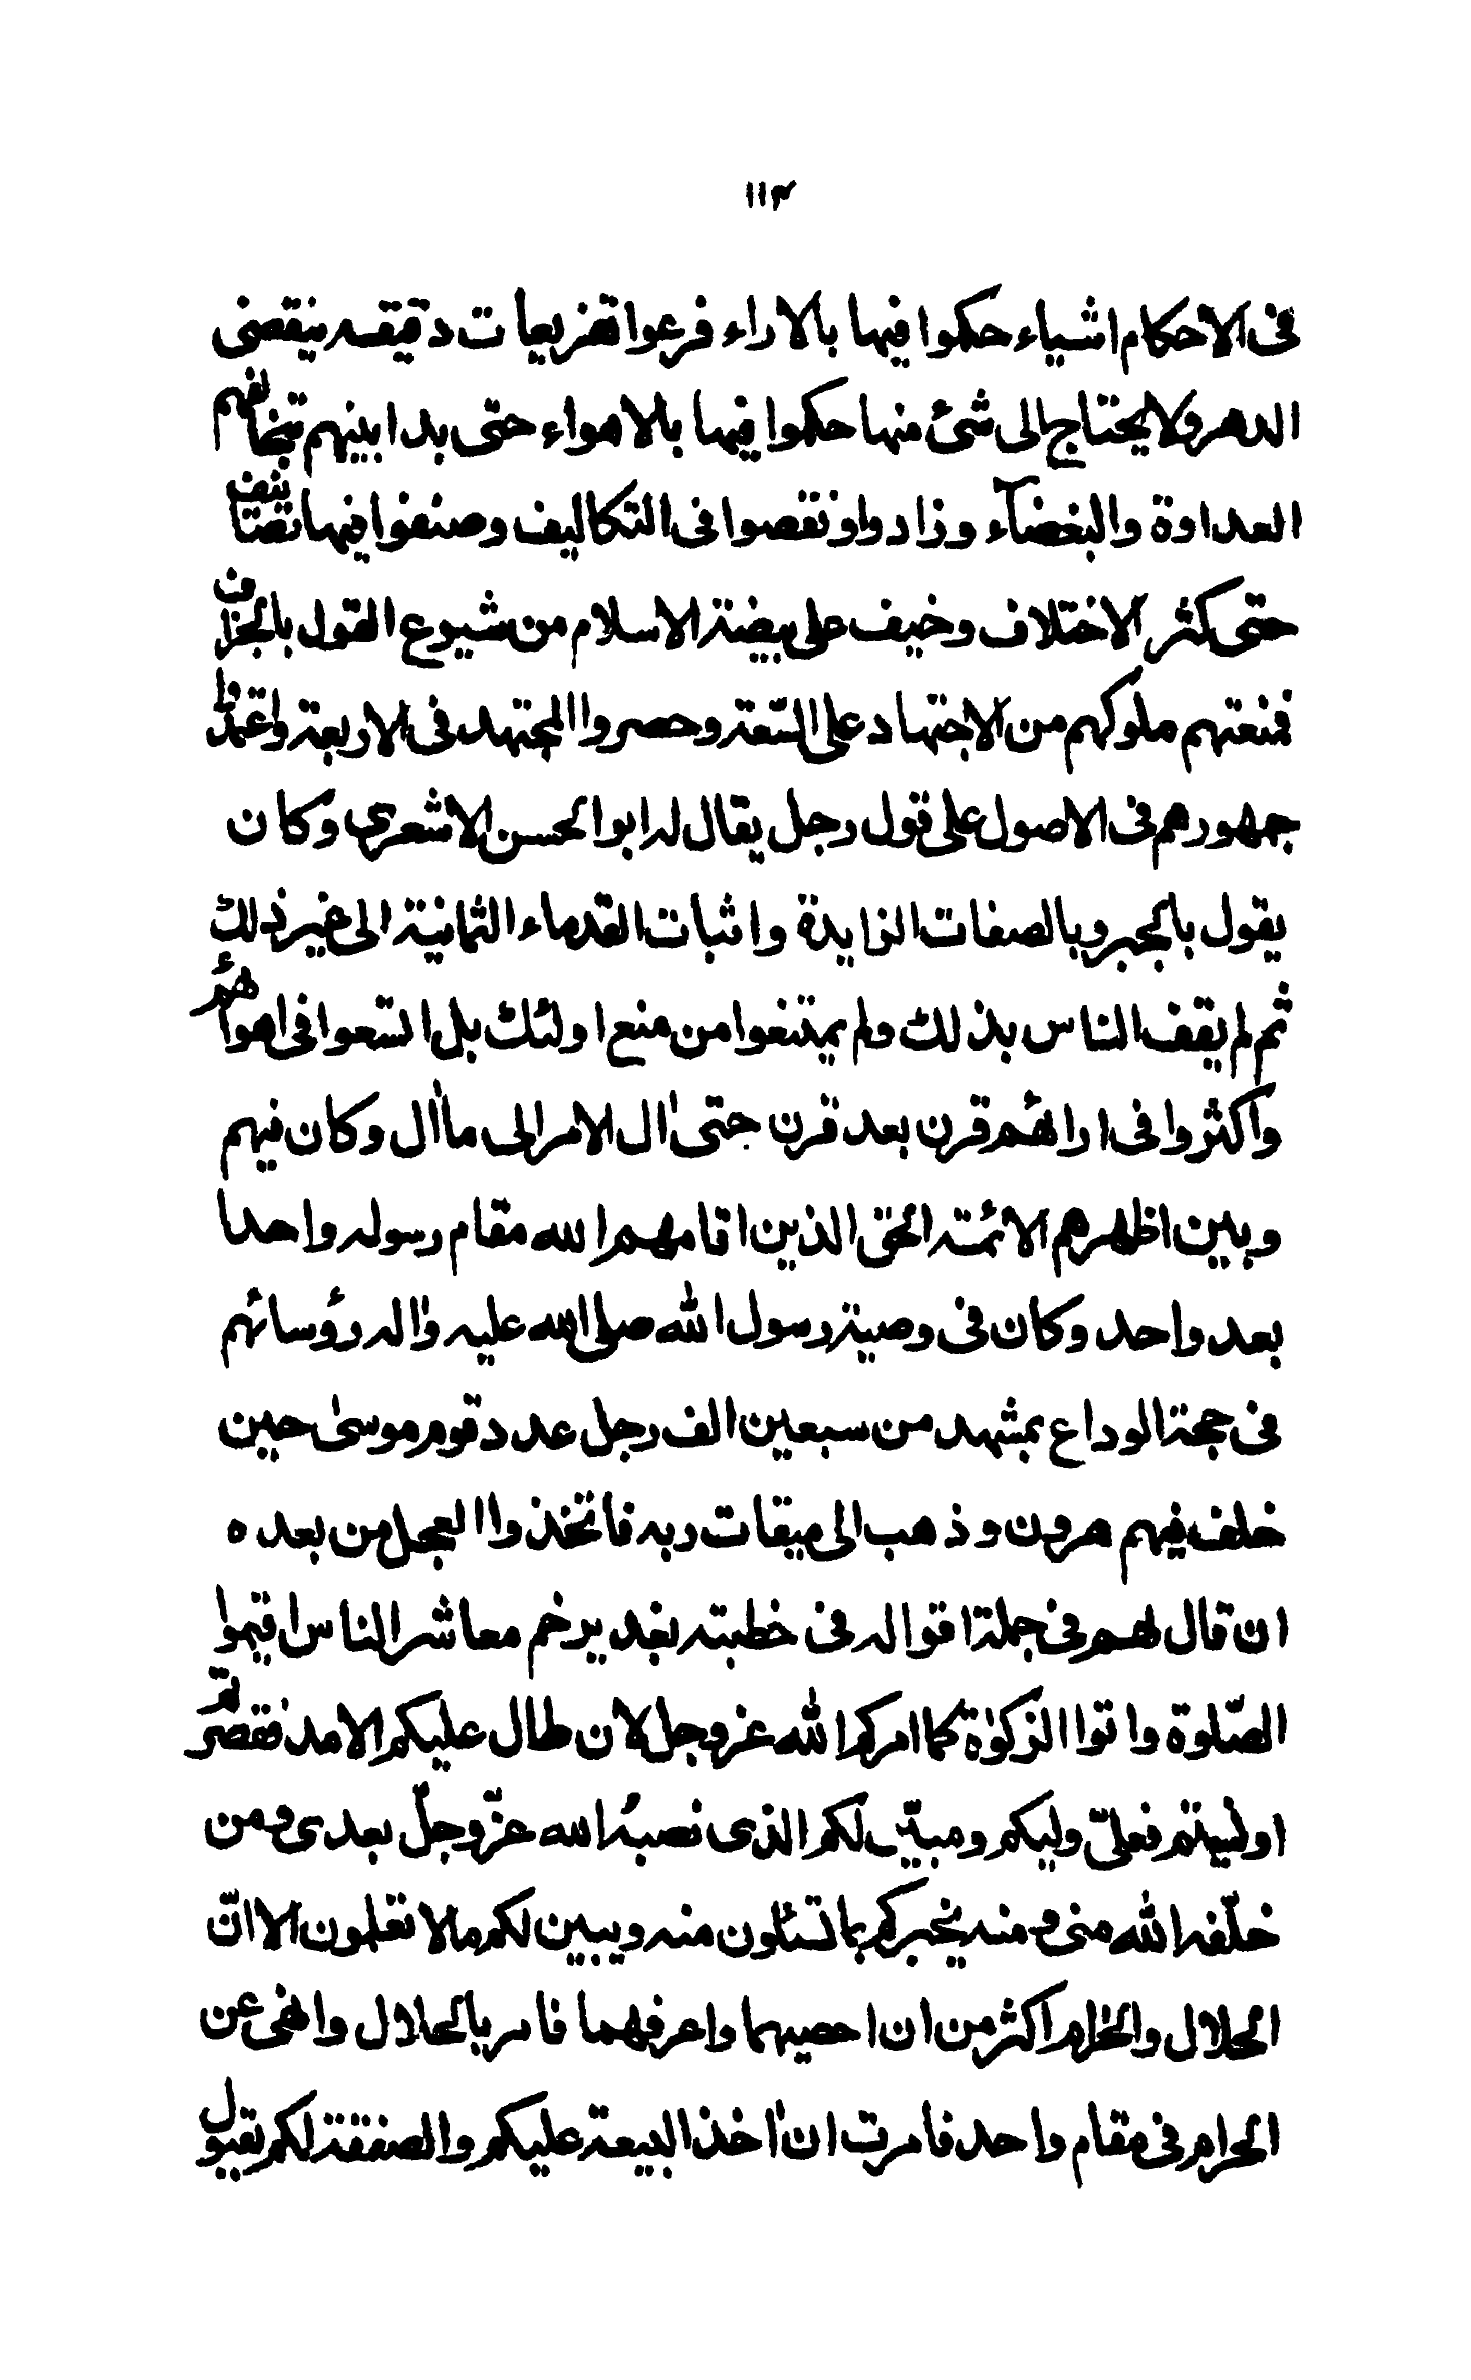 ١١٣
فى الاحكام اشياء حكموا فيها بالاراء فرعوا تفريعات دقيقه ينقضى
الدهر ولا يحتاج الى شئ منها حكموا فيها بالاهواء حتى بدا بينهم
العداوة والبغضآء وزادوا ونقصوا فى التكاليف وصنفوا فيها تصانيف
حتى كثر الاختلاف وخيف على بيضة الاسلام من شيوع القول بالجزاف
فمنعتهم ملوكهم من الاجتهاد على السّعة وحصروا المجتهد فى الاربعة واعتمدوا
جمهورهم فى الاصول على قول رجل يقال له ابوالحسن الاشعري وكان
يقول بالجبر وبالصفات الزايدة واثبات القدماء الثمانية الى غير ذلك
ثم لم يقف الناس بذلك ولم يمتنعوا من منع اولئك بل اتسعوا فى اهوائهم
واكثروا فى ارائهم قرن بعد قرن حتى اٰل الامر الى ما اٰل وكان فيهم
وبين اظهرهم الائمة الحق الذين اقامهم الله مقام رسوله واحدا
بعد واحد وكان فى وصية رسول الله صلى الله عليه واٰله رؤسائهم
فى حجة الوداع بمشهد من سبعين الف رجل عدد قوم موسىٰ حين
خلف فيهم هرون وذهب الى ميقات ربه فاتخذوا العجل من بعده
ان قال لهم فى جملة اقواله فى خطبته بغدير خم معاشر الناس اقيموا
الصّلوة واتوا الزكوٰة كما امركم الله عز وجل لان طال عليكم الامد فقصرتم
او نسيتم فعلىّ وليكم ومبيّن لكم الذى نصبهُ الله عزّ وجلّ بعدى ومن
خلّفه الله منى ومنه يخبركم بما تسئلون منه ويبين لكم ما لا تعلمون الا انّ
الحلال والحرام اكثر من ان احصيهما واعرفهما فامر بالحلال وانهى عن
الحرام فى مقام واحد فامرت ان اٰخذ البيعة عليكم والصفقة لكم بقبول